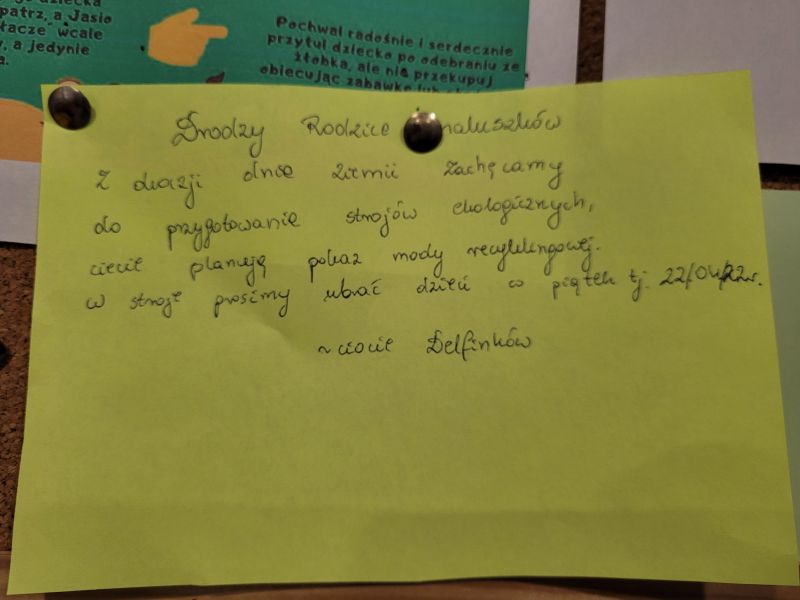 patrz, a Jasio
wcale
, a jedynie
Pochwal radośnie i serdecznie
przytul dziecko po odebraniu ze
żłobka, ale nie przekupuj
obiecując zabawkę lub
Drodzy Rodzice maluszków
Z okazji dnia ziemii zachęcamy
do przygotowania strojów ekologicznych,
ciocie planują pokaz mody recyklingowej.
w stroje prosimy ubrać dzieci w piątek tj. 22/04/22r.
~ ciocie Delfinków